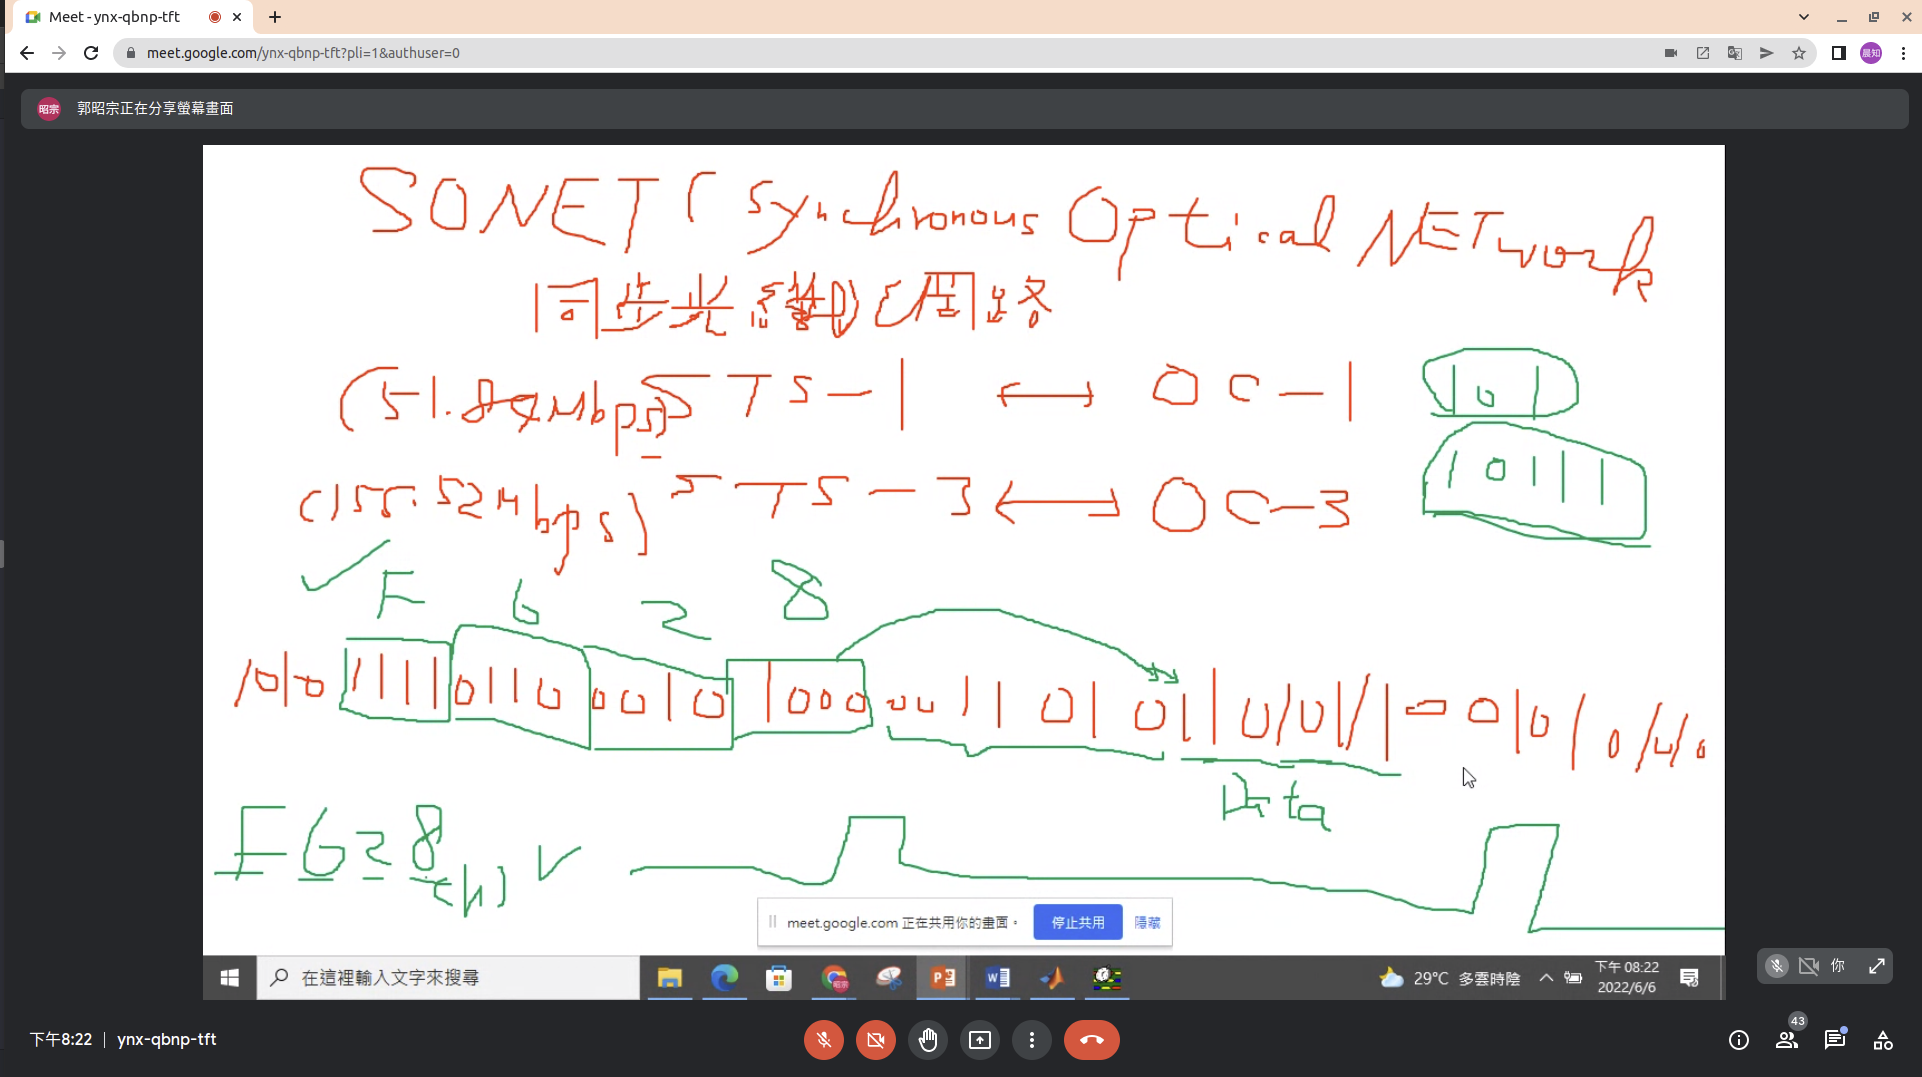 Meet - ynx-qbnp-tft
meet.google.com/ynx-qbnp-tft?pli=1&authuser=0
晨知
昭宗 郭昭宗正在分享螢幕畫面
SONET ( Synchronous Optical NETwork
同步光 網路
(51.84Mbps) STS-1 ↔ OC-1
101
(155.52Mbps) STS-3 ↔ OC-3
10111
F 6 2 8
1010 1111 0110 0010 1000
Data
F628(h)
meet.google.com 正在共用你的畫面。 停止共用 隱藏
在這裡輸入文字來搜尋
29°C 多雲時陰
下午 08:22
2022/6/6
你
下午8:22 | ynx-qbnp-tft
43